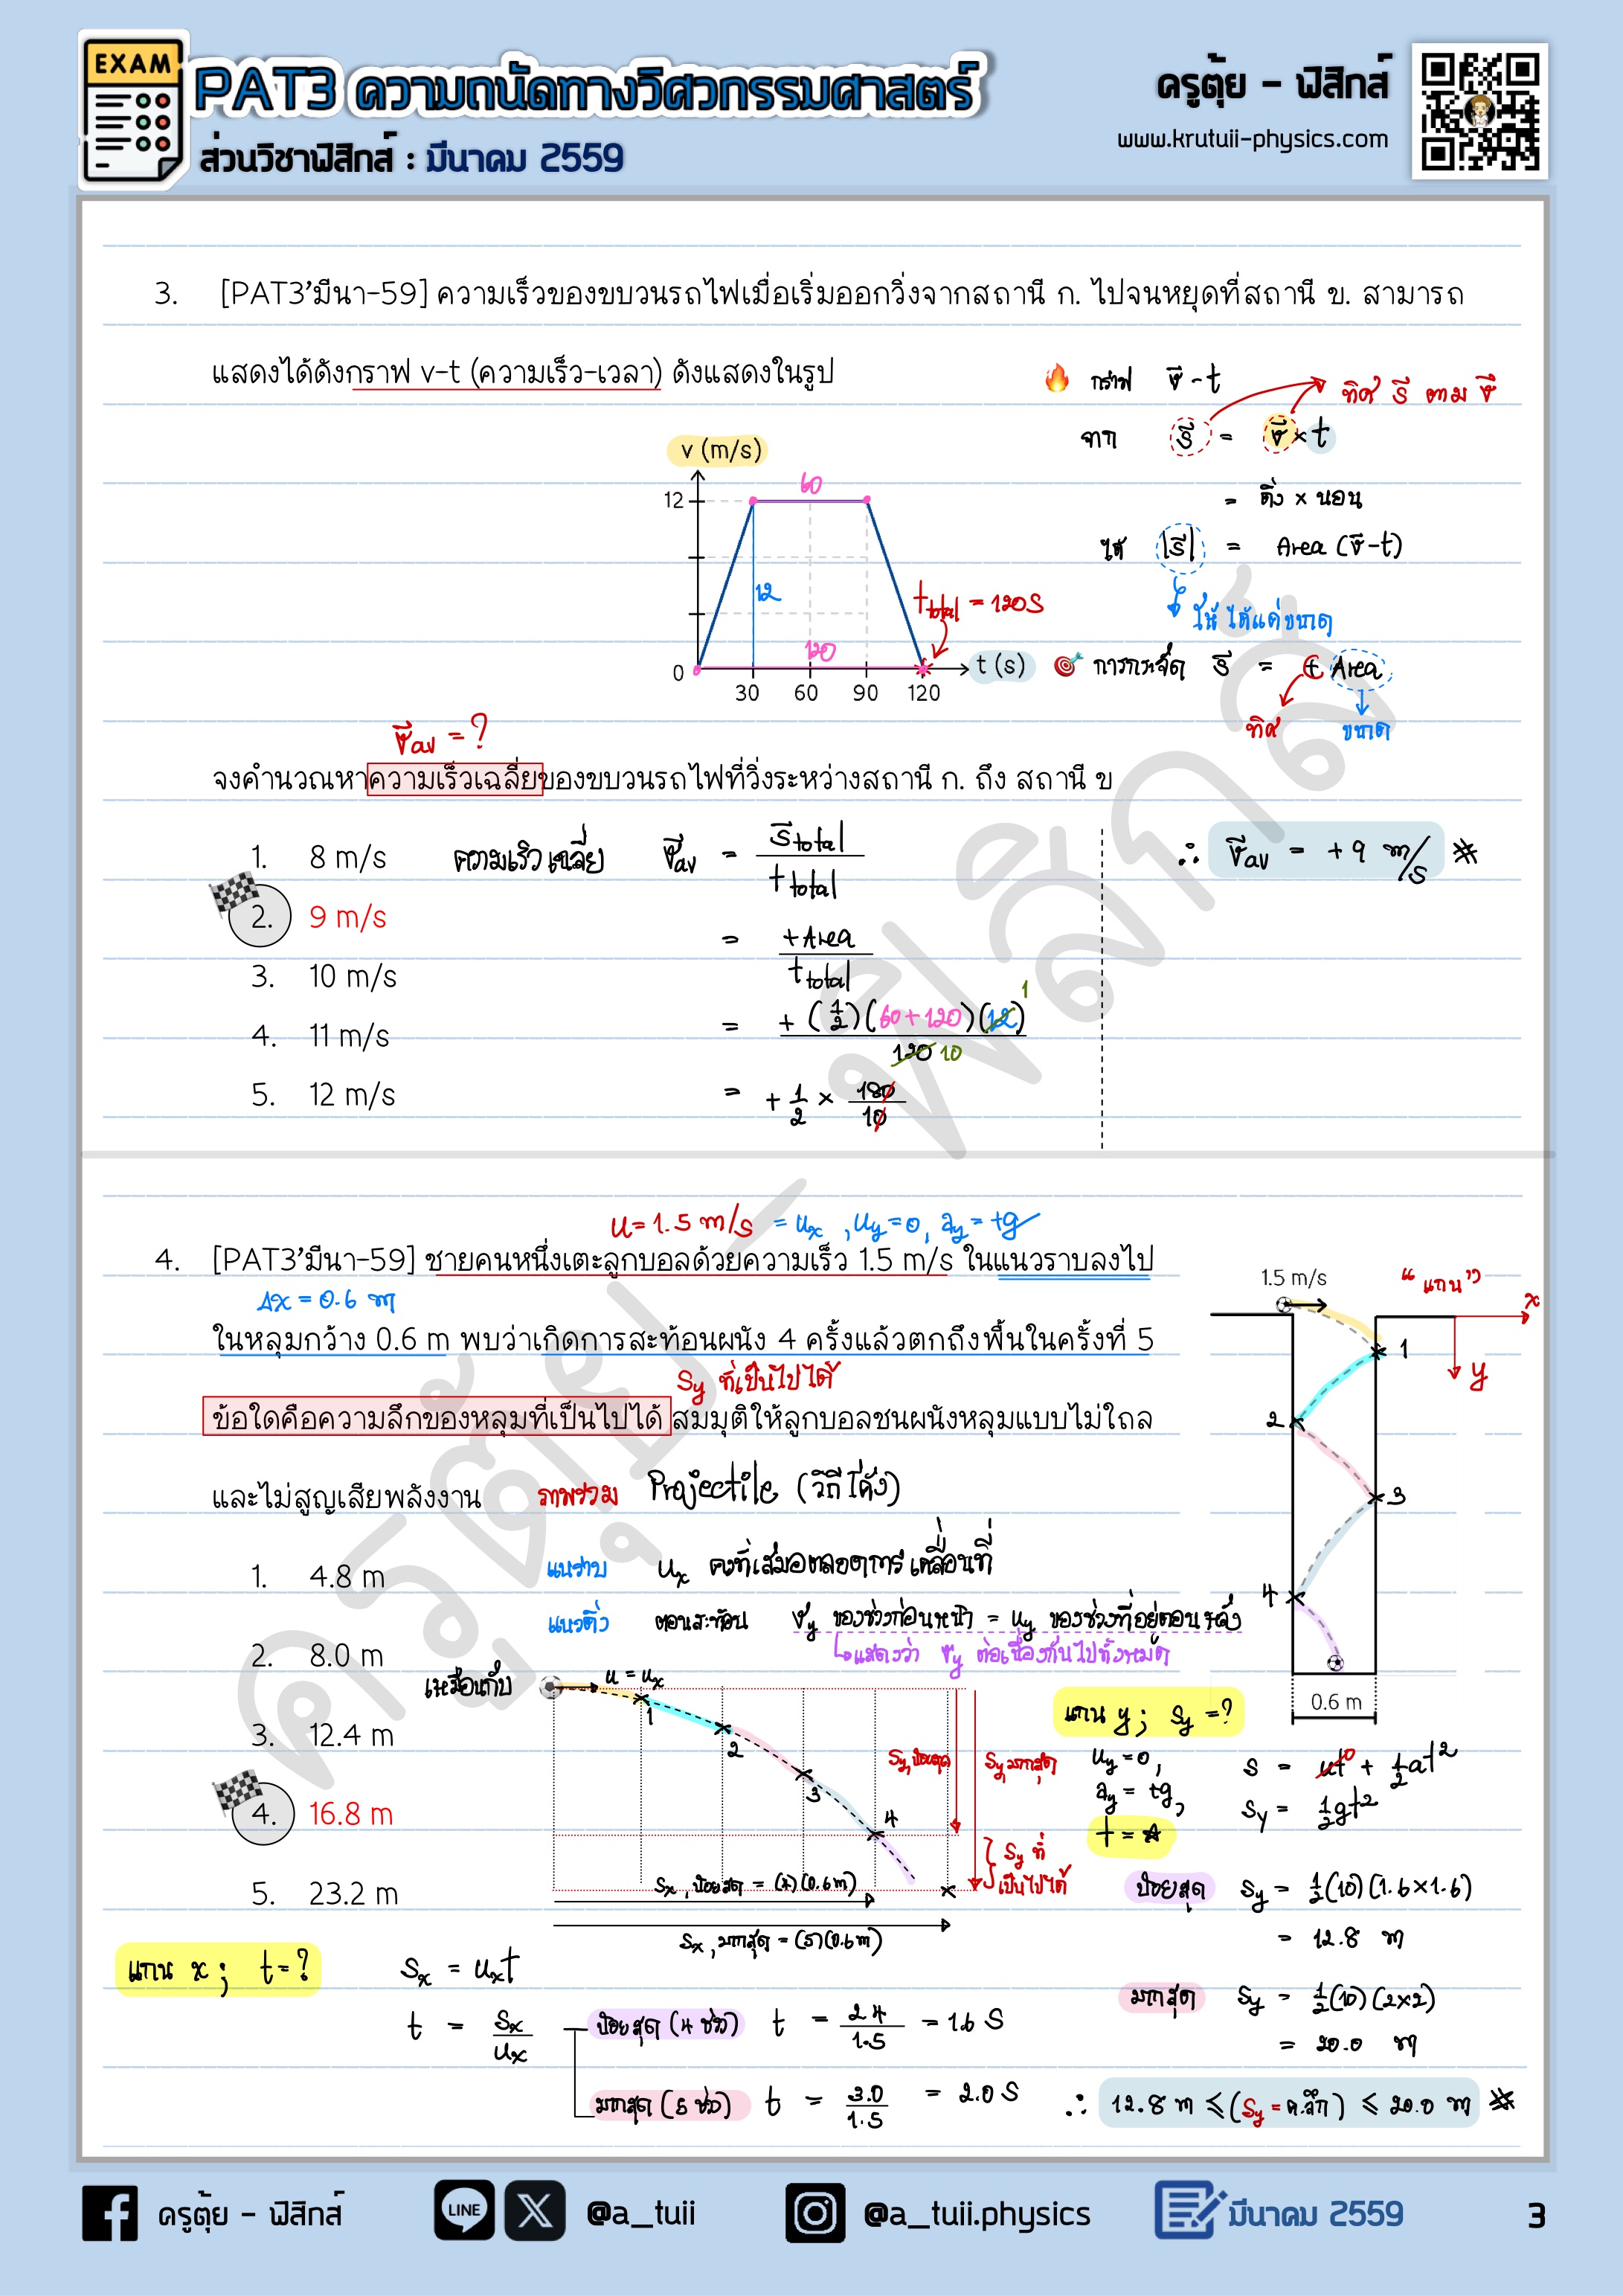 EXAM
PAT3 ความถนัดทางวิศวกรรมศาสตร์
ส่วนวิชาฟิสิกส์ : มีนาคม 2559
ครูตุ้ย - ฟิสิกส์
www.krutuii-physics.com
3. [PAT3'มีนา-59] ความเร็วของขบวนรถไฟเมื่อเริ่มออกวิ่งจากสถานี ก. ไปจนหยุดที่สถานี ข. สามารถ
แสดงได้ดังกราฟ v-t (ความเร็ว-เวลา) ดังแสดงในรูป
🔥 กราฟ v⃗ - t
ทิศ s⃗ ตาม v⃗
จาก s⃗ = v⃗ × t
= ตั้ง × นอน
ได้ |s⃗| = Area (v⃗-t)
ให้ได้แค่ขนาด
🎯 การกระจัด s⃗ = ± Area
ทิศ ขนาด
v (m/s)
60
12
12
t total = 120 s
120
0
t (s)
30 60 90 120
v⃗av = ?
จงคำนวณหาความเร็วเฉลี่ยของขบวนรถไฟที่วิ่งระหว่างสถานี ก. ถึง สถานี ข
1. 8 m/s
2. 9 m/s
3. 10 m/s
4. 11 m/s
5. 12 m/s
ความเร็วเฉลี่ย v⃗av = s⃗total / t total
= +Area / t total
= + (1/2)(60+120)(12) 1 / 120 10
= + 1/2 × 180/10
∴ v⃗av = +9 m/s ※
u = 1.5 m/s = ux , uy = 0, ay = +g
4. [PAT3'มีนา-59] ชายคนหนึ่งเตะลูกบอลด้วยความเร็ว 1.5 m/s ในแนวราบลงไป
Δx = 0.6 m
ในหลุมกว้าง 0.6 m พบว่าเกิดการสะท้อนผนัง 4 ครั้งแล้วตกถึงพื้นในครั้งที่ 5
Sy ที่เป็นไปได้
ข้อใดคือความลึกของหลุมที่เป็นไปได้ สมมุติให้ลูกบอลชนผนังหลุมแบบไม่ไถล
และไม่สูญเสียพลังงาน
ภาพรวม Projectile (วิถีโค้ง)
1. 4.8 m
2. 8.0 m
3. 12.4 m
4. 16.8 m
5. 23.2 m
แนวราบ ux คงที่เสมอตลอดการเคลื่อนที่
แนวดิ่ง ตอนสะท้อน vy ของช่วงก่อนหน้า = uy ของช่วงที่อยู่ตอนหลัง
แสดงว่า vy ต่อเนื่องกันไปทั้งหมด
1.5 m/s
"แกน"
x
y
1
2
3
4
0.6 m
เหมือนกับ
u = ux
1
2
3
4
Sy,น้อยสุด
Sy,มากสุด
Sy ที่
เป็นไปได้
Sx , น้อยสุด = (4)(0.6m)
Sx , มากสุด = (5)(0.6m)
แกน y ; Sy = ?
uy = 0,
ay = +g,
t = ☆
s = ut 0 + 1/2 at²
Sy = 1/2 gt²
น้อยสุด Sy = 1/2 (10)(1.6×1.6)
= 12.8 m
มากสุด Sy = 1/2 (10)(2×2)
= 20.0 m
∴ 12.8 m ≤ (Sy = ค.ลึก) ≤ 20.0 m ※
แกน x ; t = ?
Sx = uxt
t = Sx / ux
น้อยสุด (4 ช่วง) t = 2.4 / 1.5 = 1.6 s
มากสุด (5 ช่วง) t = 3.0 / 1.5 = 2.0 s
ครูตุ้ย - ฟิสิกส์
ครูตุ้ย - ฟิสิกส์
LINE
@a_tuii
@a_tuii.physics
มีนาคม 2559
3